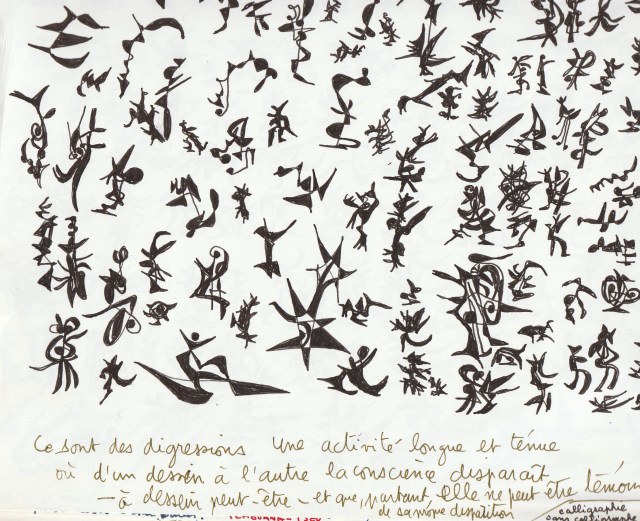 Ce sont des digressions Une activité longue et ténue
où d'un dessin à l'autre la conscience disparaît
— à dessein peut-être — et que, partant, elle ne peut être témoin
de sa propre disparition
calligraphie
sans calligraphie